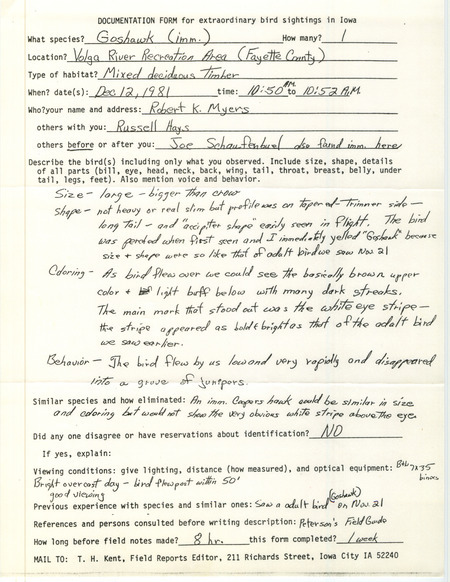 DOCUMENTATION FORM for extraordinary bird sightings in Iowa
What species? Goshawk (imm.) How many? 1
Location? Volga River Recreation Area (Fayette County)
Type of habitat? Mixed deciduous Timber
When? date(s): Dec 12, 1981 time: 10:50 AM to 10:52 A.M.
Who?your name and address: Robert K. Myers
others with you: Russell Hays
others before or after you: Joe Schaufenbuel also found imm. here
Describe the bird(s) including only what you observed. Include size, shape, details
of all parts (bill, eye, head, neck, back, wing, tail, throat, breast, belly, under
tail, legs, feet). Also mention voice and behavior.
Size - large - bigger than crow
Shape - not heavy or real slim but profile was on tapered-trimmer side -
long tail - and "accipiter shape" easily seen in flight. The bird
was perched when first seen and I immediately yelled "Goshawk" because
size & shape were so like that of adult bird we saw Nov 21
Coloring - As bird flew over we could see the basically brown upper
color & light buff below with many dark streaks.
The main mark that stood out was the white eye stripe -
the stripe appeared as bold & bright as that of the adult bird
we saw earlier.
Behavior - The bird flew by us low and very rapidly and disappeared
into a grove of junipers.
Similar species and how eliminated: An imm. Coopers hawk could be similar in size
and coloring but would not show the very obvious white stripe above the eye.
Did any one disagree or have reservations about identification? NO
If yes, explain:
Viewing conditions: give lighting, distance (how measured), and optical equipment: B&L 7x35 binocs
Bright overcast day - bird flew past within 50'
good viewing
Previous experience with species and similar ones: Saw a adult bird (Goshawk) on Nov. 21
References and persons consulted before writing description: Peterson's Field Guide
How long before field notes made? 8 hr. this form completed? 1 week
MAIL TO: T. H. Kent, Field Reports Editor, 211 Richards Street, Iowa City IA 52240